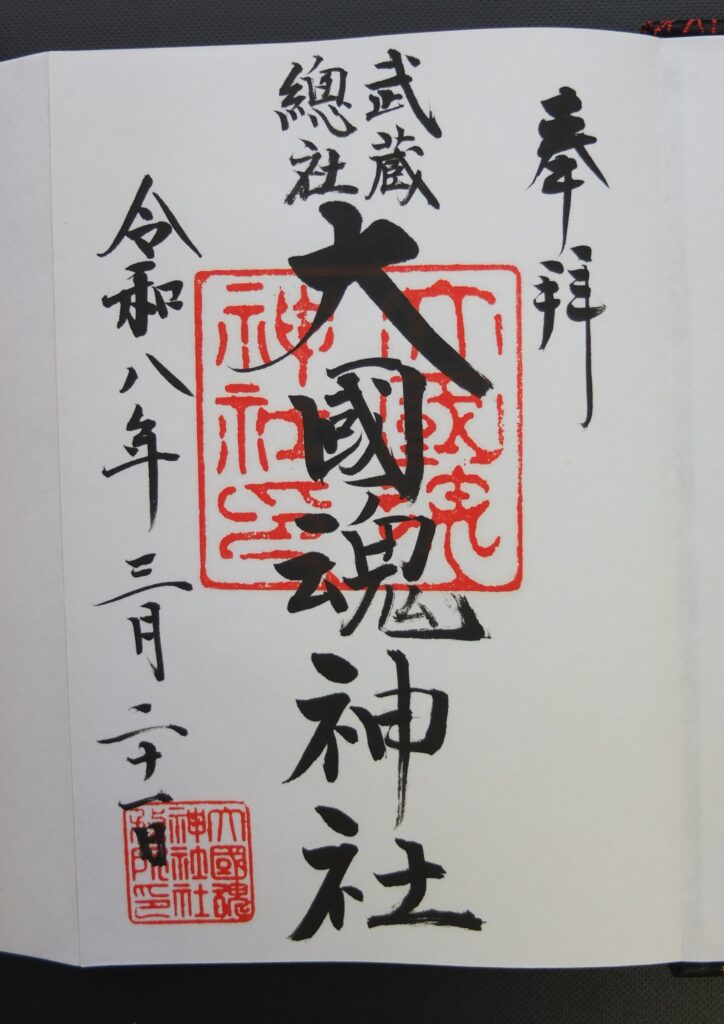 奉拝
武蔵
總社
大國魂神社
大國魂
神社印
令和八年三月二十一日
大國魂
神社社
務所印